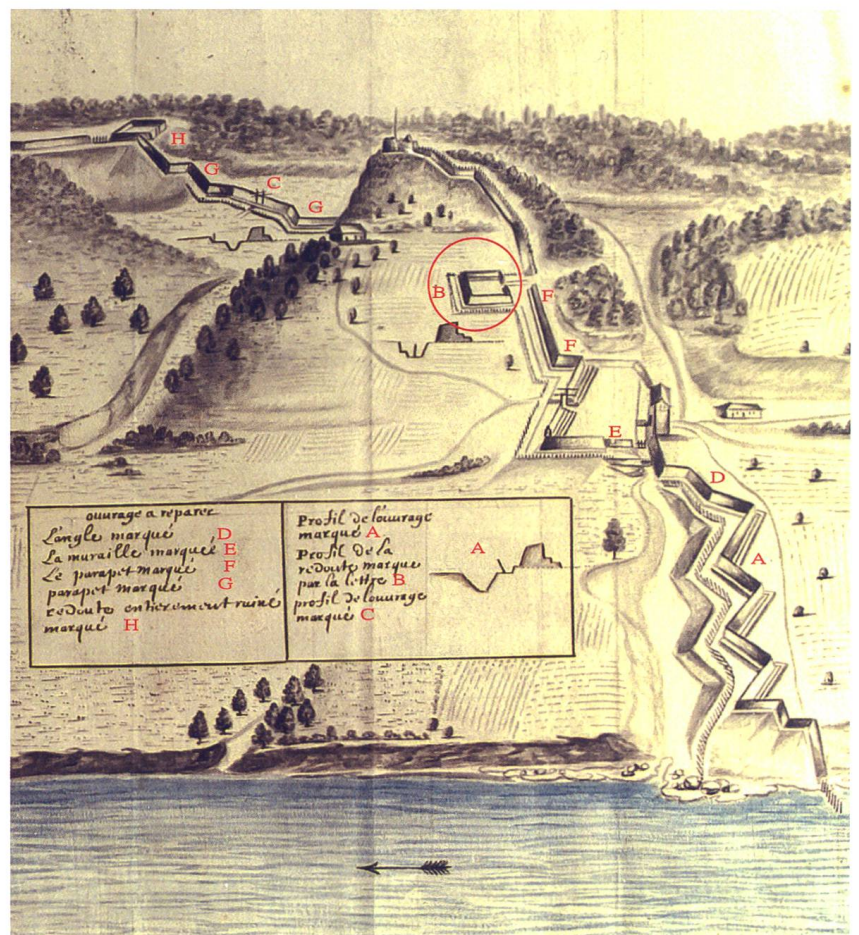 H
G
C
G
B
F
F
E
D
A
ouvrage a reparer
L'angle marqué D
La muraille marqué E
Le parapet marqué F
parapet marqué G
redoute entierement ruiné
marqué H
Profil de l'ouvrage
marqué A
Profil de la
redoute marque
par la lettre B
profil de louvrage
marqué C
A